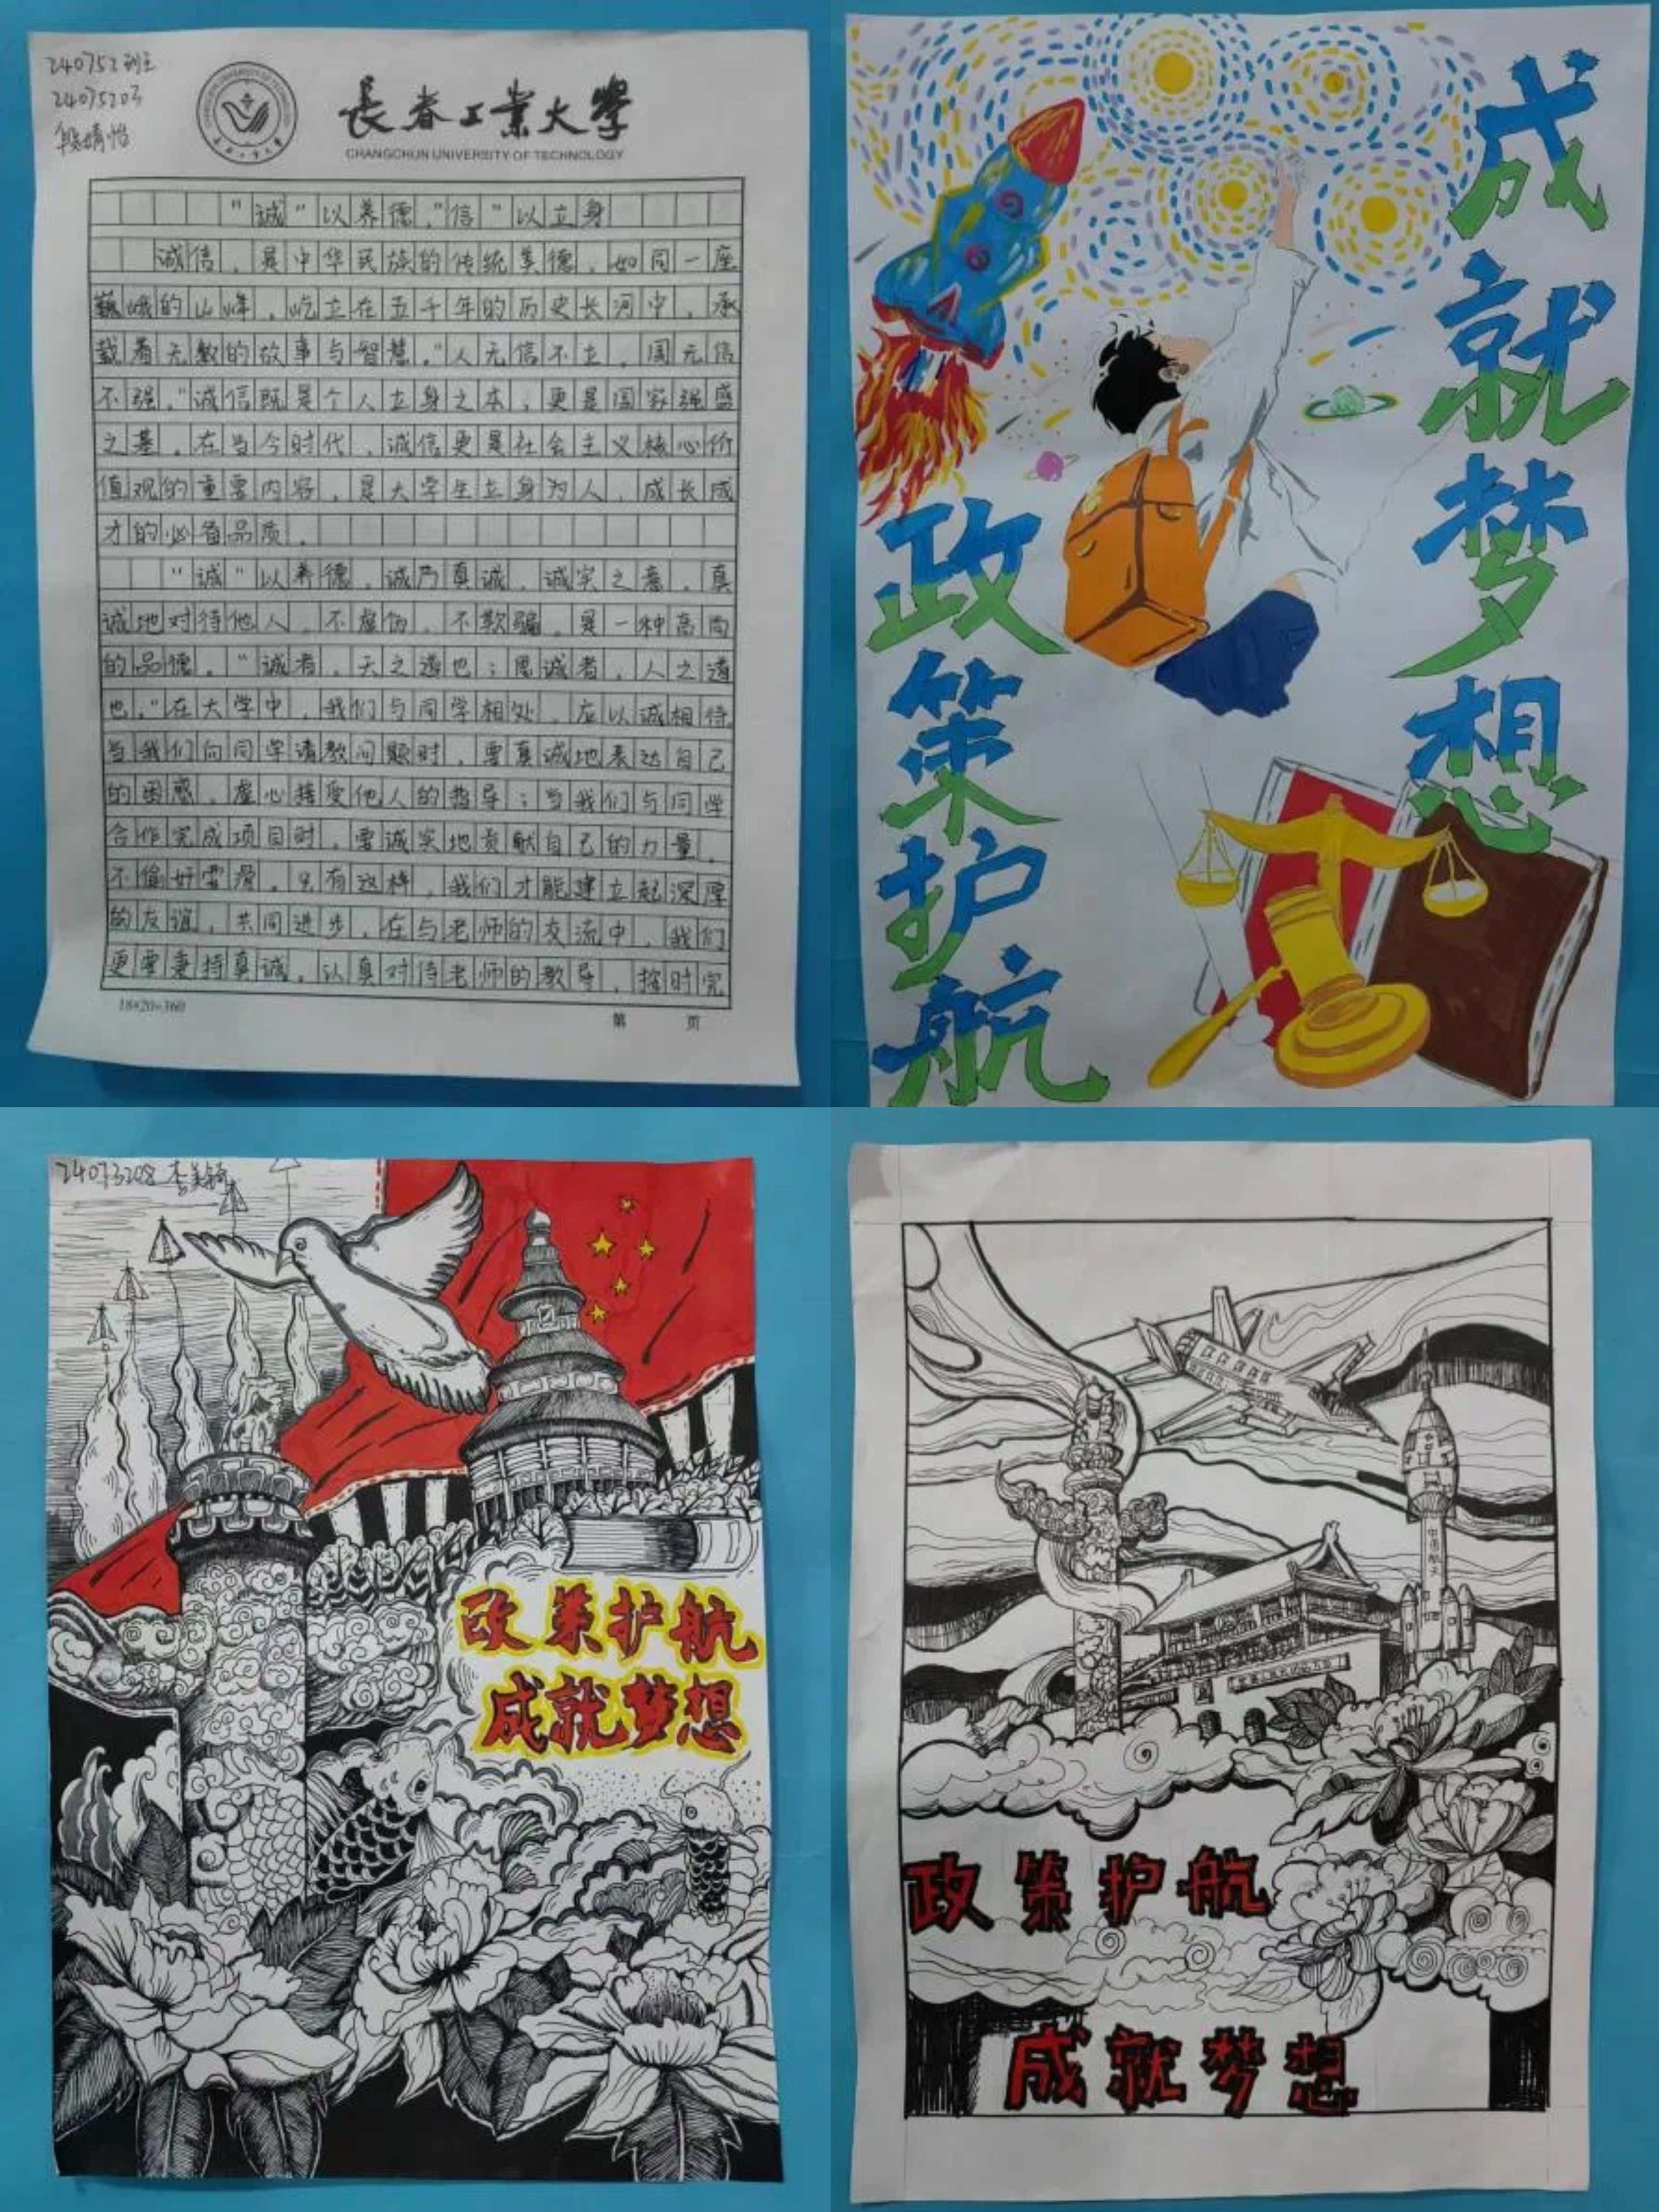 240752班
24075203
段婧怡
長春工業大學
CHANGCHUN UNIVERSITY OF TECHNOLOGY
"诚"以养德,"信"以立身
诚信,是中华民族的传统美德,如同一座
巍峨的山峰,屹立在五千年的历史长河中,承
载着无数的故事与智慧。"人无信不立,国无信
不强。"诚信既是个人立身之本,更是国家强盛
之基。在当今时代,诚信更是社会主义核心价
值观的重要内容,是大学生立身为人、成长成
才的必备品质。
"诚"以养德。诚乃真诚、诚实之意。真
诚地对待他人,不虚伪,不欺骗,是一种高尚
的品德。"诚者,天之道也;思诚者,人之道
也。"在大学中,我们与同学相处,应以诚相待。
当我们向同学请教问题时,要真诚地表达自己
的困惑,虚心接受他人的指导;当我们与同学
合作完成项目时,要诚实地贡献自己的力量,
不偷奸耍滑。只有这样,我们才能建立起深厚
的友谊,共同进步。在与老师的交流中,我们
更要秉持真诚。认真对待老师的教导,按时完
18×20=360
第 页
成就梦想
政策护航
24073208 李美锜
政策护航
成就梦想
中国航天
政策护航
成就梦想